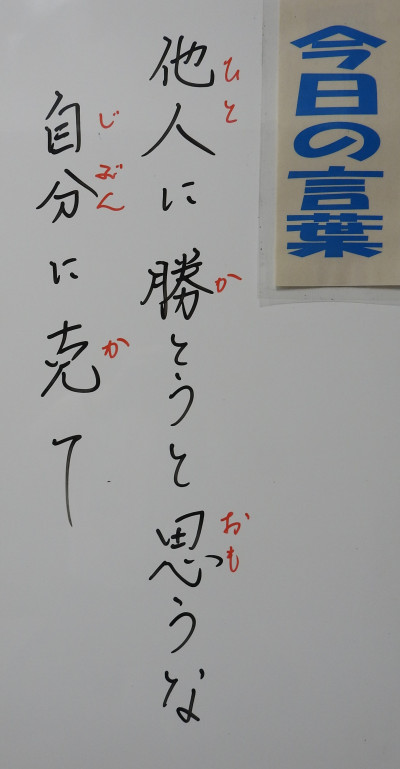 今日の言葉
他人に勝とうと思うな
ひと
か
おも
自分に克て
じぶん
か